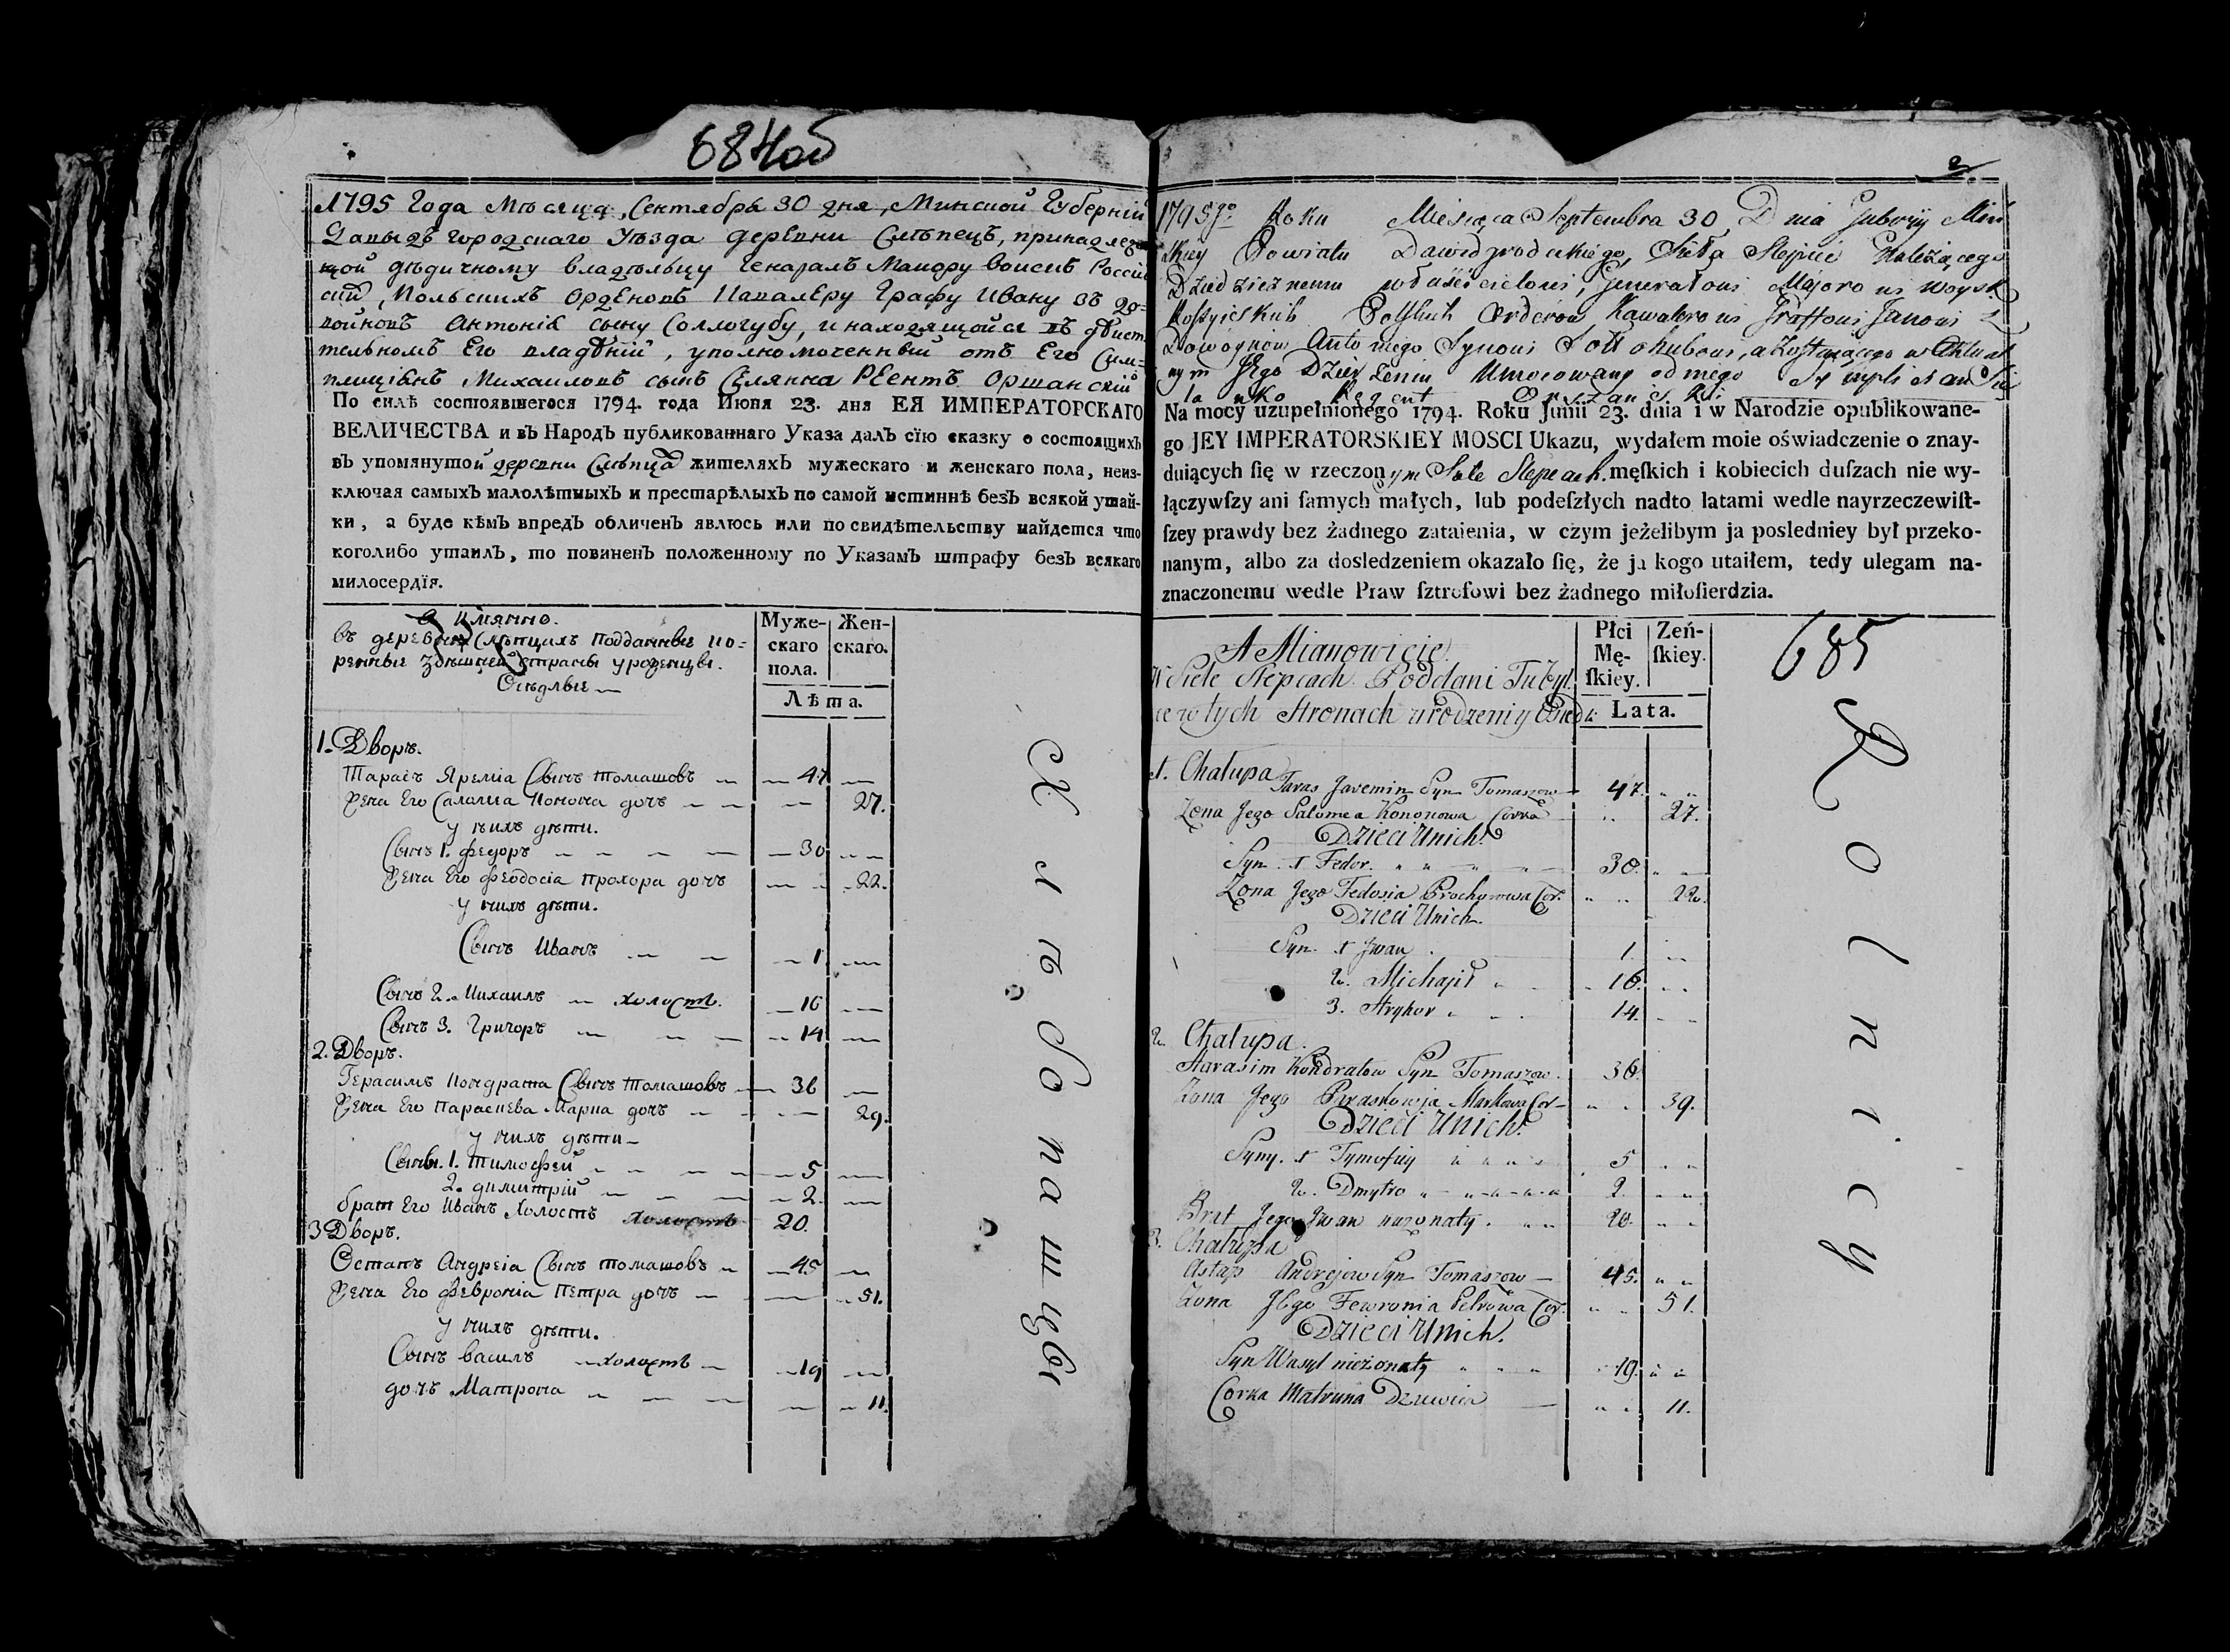 684об
1795 Года Мѣсяца, Сентября 30 дня, Минской Губерніи
Давыдъ городскаго Уѣзда деревни Слѣпецъ, принадлежа
щой дѣдичному владѣльцу Генаралъ Маиору воискъ Россій
ски, Польскихъ Орденовъ Кавалеру Графу Ивану зъ до-
войновъ Антонія сыну Соллогубу, и находящойся въ дѣйст
тельномъ Его владѣніи, уполномоченный отъ Его Сим-
плиціянъ Михаиловъ сынъ Селянка Реентъ Оршанскій
По силѣ состоявшегося 1794. года Июня 23. дня ЕЯ ИМПЕРАТОРСКАГО
ВЕЛИЧЕСТВА и въ Народъ публикованнаго Указа далъ сїю сказку о состоящихъ
въ упомянутой деревни Слѣпца жителяхъ мужескаго и женскаго пола, неиз-
ключая самыхъ малолѣтныхъ и престарѣлыхъ по самой истиннѣ безъ всякой утай-
ки, а буде кѣмъ впредь обличенъ явлюсь или по свидѣтельству найдется что
коголибо утаилъ, то повиненъ положенному по Указамъ штрафу безъ всякаго
милосердїя.
А Имянно.
въ деревни Слѣпцихъ Подданные ко-
ренные здѣшней страны уроженцы.
Осѣдлые
Муже-
скаго
пола.
Жен-
скаго.
Лѣта.
1. Дворъ.
Тарасъ Яреміа Сынъ Томашовъ 47
Жена Его Саламиа Конона дочъ 27.
у нихъ дѣти.
Сынъ 1. Федоръ 30
Жена Его Феодосіа Прохора дочъ 22.
у нихъ дѣти.
Сынъ Иванъ 1
Сынъ 2. Михаилъ холостъ. 16
Сынъ 3. Григоръ 14
2. Дворъ.
Герасимъ Кондрата Сынъ Томашовъ 36
Жена Его Параскева Марка дочъ 29.
у нихъ дѣти
Сыны. 1. Тимофей 5
2. димитрій 2.
братъ Его Иванъ Холостъ холостъ 20.
3 Дворъ.
Остапъ Андреіа Сынъ Томашовъ 45
Жена Его Февроніа Петра дочъ 51.
у нихъ дѣти.
Сынъ василъ холостъ 19
дочъ Матрона 11.
Хлѣбопашцы
2.
1795go Roku Miesiąca Septembra 30 Dnia Gubernij Miń
skiey Powiatu Dawidgrodzkiego, Sieła Slepiec Należącego
Dziedzicznemu właścicielowi, Generałowi Majorowi woysk
Rossyiskich Polskich Orderów Kawalerowi Graffowi Janowi z
Dowoynow Antoniego Synowi Sołłohubowi, a Zostaiącego w Aktual
nym Jego Dzierżeniu Umocowany od niego Symplician Sie
lanko Regent Orszański.
Na mocy uzupełnionego 1794. Roku Junii 23. dnia i w Narodzie opublikowane-
go JEY IMPERATORSKIEY MOSCI Ukazu, wydałem moie oświadczenie o znay-
duiących ſię w rzeczonym Siele Slepcach. męſkich i kobiecich duſzach nie wy-
łączywſzy ani ſamych małych, lub podeſzłych nadto latami wedle nayrzeczewiſt-
ſzey prawdy bez żadnego zataienia, w czym jeżelibym ja posledniey był przeko-
nanym, albo za dosledzeniem okazało ſię, że ja kogo utaiłem, tedy ulegam na-
znaczonemu wedle Praw ſztrofowi bez żadnego miłoſierdzia.
A Mianowicie.
W Siele Slepcach Poddani Tubyl.
ce w tych Stronach urodzeni y Osiedli
Płci
Mę-
ſkiey.
Zeń-
ſkiey.
Lata.
685
1. Chałupa
Taras Jaremin Syn Tomaszow 47.
Zona Jego Salomea Kononowa Corka 27.
Dzieci Unich.
Syn 1 Fedor. 30.
Zona Jego Fedosia Prochorowa Cor. 22.
Dzieci Unich.
Syn 1 Jwan 1.
2. Michajił 16.
3. Hryhor 14.
2. Chałupa.
Harasim Kondratow Syn Tomaszow. 36.
Zona Jego Paraskowja Markowa Cor 39.
Dzieci Unich.
Syny. 1 Tymofiiy 5
2. Dmytro 2.
Brat Jego Jwan nieżonaty. 20.
3. Chałupa
Astap Andrejow Syn Tomaszow 45.
Zona Jego Fewronia Petrowa Cor. 51.
Dzieci Unich.
Syn Wasyl nieżonaty 19.
Corka Matruna Dziewica 11.
Rolnicy